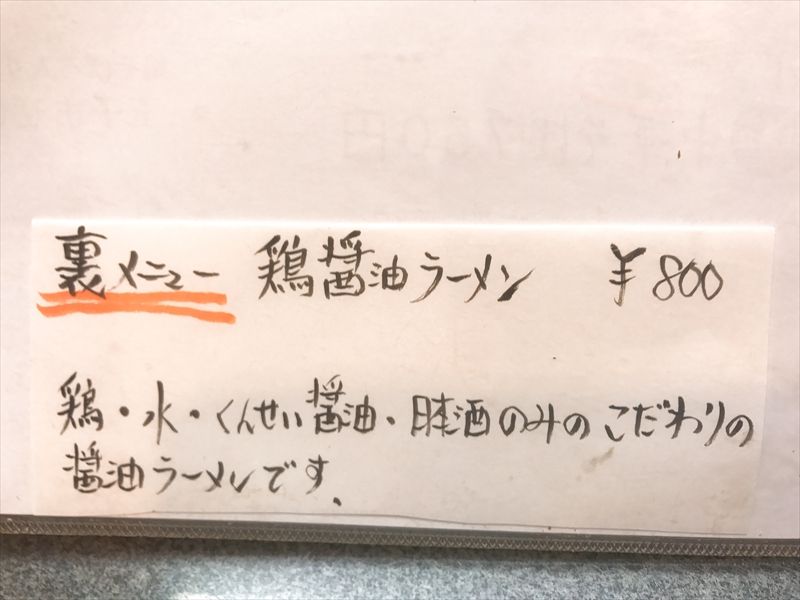 裏メニュー 鶏醤油ラーメン ¥800
鶏・水・くんせい醤油・日本酒のみのこだわりの
醤油ラーメンです、